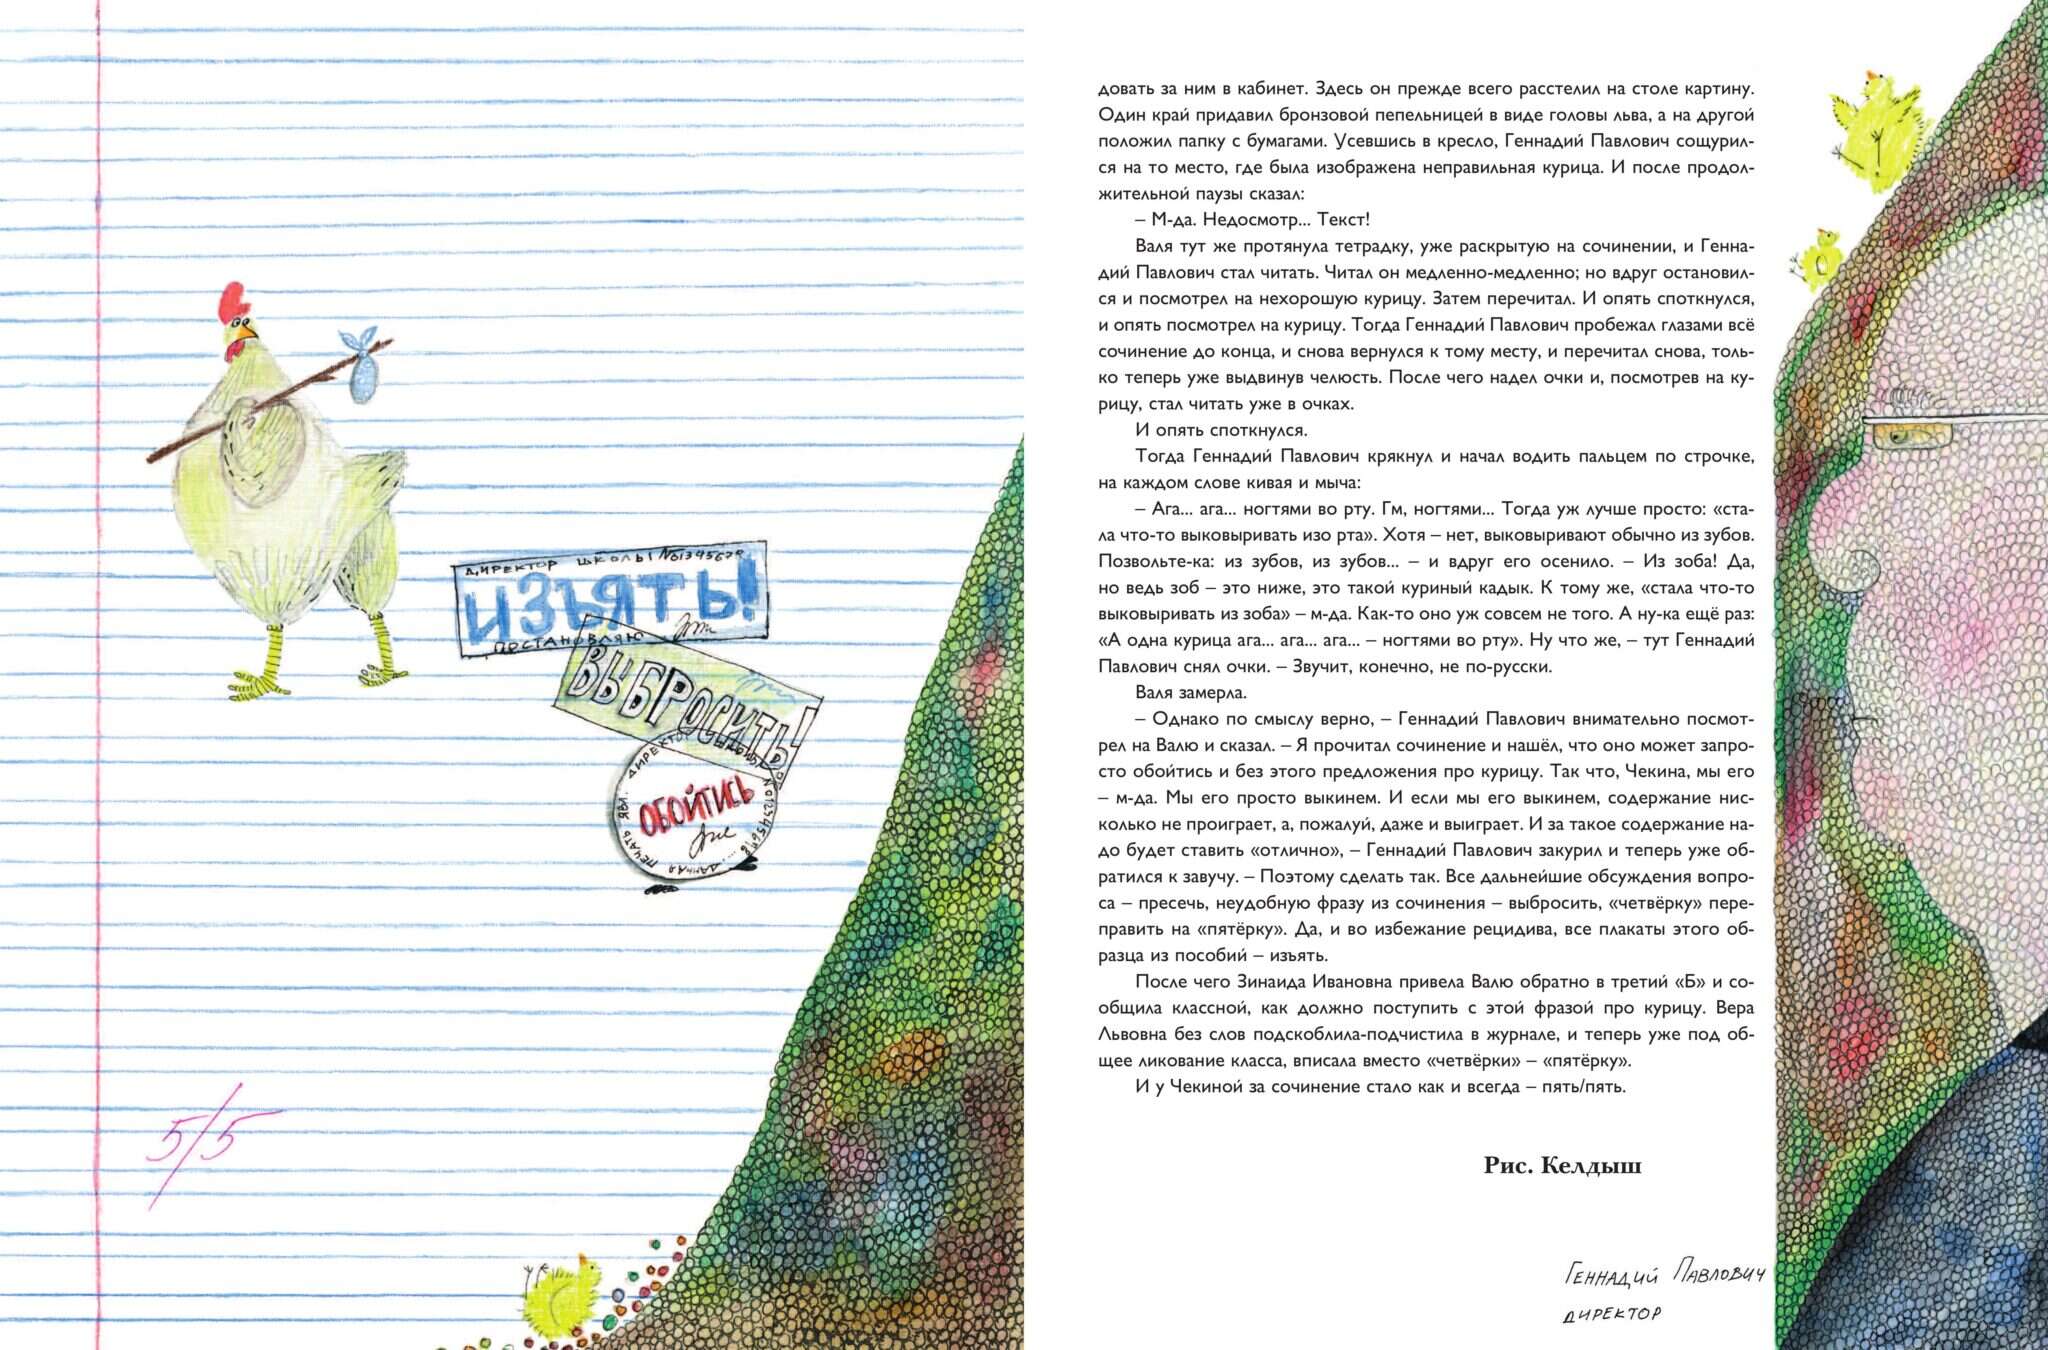 ДИРЕКТОР ШКОЛЫ №1345678
ИЗЪЯТЬ!
ПОСТАНОВЛЯЮ
ВЫБРОСИТЬ!
ДИРЕКТОР ШКОЛЫ
ОБОЙТИСЬ
ДАННАЯ ПЕЧАТЬ ЯВЛ.
5/5
довать за ним в кабинет. Здесь он прежде всего расстелил на столе картину.
Один край придавил бронзовой пепельницей в виде головы льва, а на другой
положил папку с бумагами. Усевшись в кресло, Геннадий Павлович сощурил-
ся на то место, где была изображена неправильная курица. И после продол-
жительной паузы сказал:
– М-да. Недосмотр... Текст!
Валя тут же протянула тетрадку, уже раскрытую на сочинении, и Генна-
дий Павлович стал читать. Читал он медленно-медленно; но вдруг остановил-
ся и посмотрел на нехорошую курицу. Затем перечитал. И опять споткнулся,
и опять посмотрел на курицу. Тогда Геннадий Павлович пробежал глазами всё
сочинение до конца, и снова вернулся к тому месту, и перечитал снова, толь-
ко теперь уже выдвинув челюсть. После чего надел очки и, посмотрев на ку-
рицу, стал читать уже в очках.
И опять споткнулся.
Тогда Геннадий Павлович крякнул и начал водить пальцем по строчке,
на каждом слове кивая и мыча:
– Ага... ага... ногтями во рту. Гм, ногтями... Тогда уж лучше просто: «ста-
ла что-то выковыривать изо рта». Хотя – нет, выковыривают обычно из зубов.
Позвольте-ка: из зубов, из зубов... – и вдруг его осенило. – Из зоба! Да,
но ведь зоб – это ниже, это такой куриный кадык. К тому же, «стала что-то
выковыривать из зоба» – м-да. Как-то оно уж совсем не того. А ну-ка ещё раз:
«А одна курица ага... ага... ага... – ногтями во рту». Ну что же, – тут Геннадий
Павлович снял очки. – Звучит, конечно, не по-русски.
Валя замерла.
– Однако по смыслу верно, – Геннадий Павлович внимательно посмот-
рел на Валю и сказал. – Я прочитал сочинение и нашёл, что оно может запро-
сто обойтись и без этого предложения про курицу. Так что, Чекина, мы его
– м-да. Мы его просто выкинем. И если мы его выкинем, содержание нис-
колько не проиграет, а, пожалуй, даже и выиграет. И за такое содержание на-
до будет ставить «отлично», – Геннадий Павлович закурил и теперь уже об-
ратился к завучу. – Поэтому сделать так. Все дальнейшие обсуждения вопро-
са – пресечь, неудобную фразу из сочинения – выбросить, «четвёрку» пере-
править на «пятёрку». Да, и во избежание рецидива, все плакаты этого об-
разца из пособий – изъять.
После чего Зинаида Ивановна привела Валю обратно в третий «Б» и со-
общила классной, как должно поступить с этой фразой про курицу. Вера
Львовна без слов подскоблила-подчистила в журнале, и теперь уже под об-
щее ликование класса, вписала вместо «четвёрки» – «пятёрку».
И у Чекиной за сочинение стало как и всегда – пять/пять.
Рис. Келдыш
Геннадий Павлович
директор